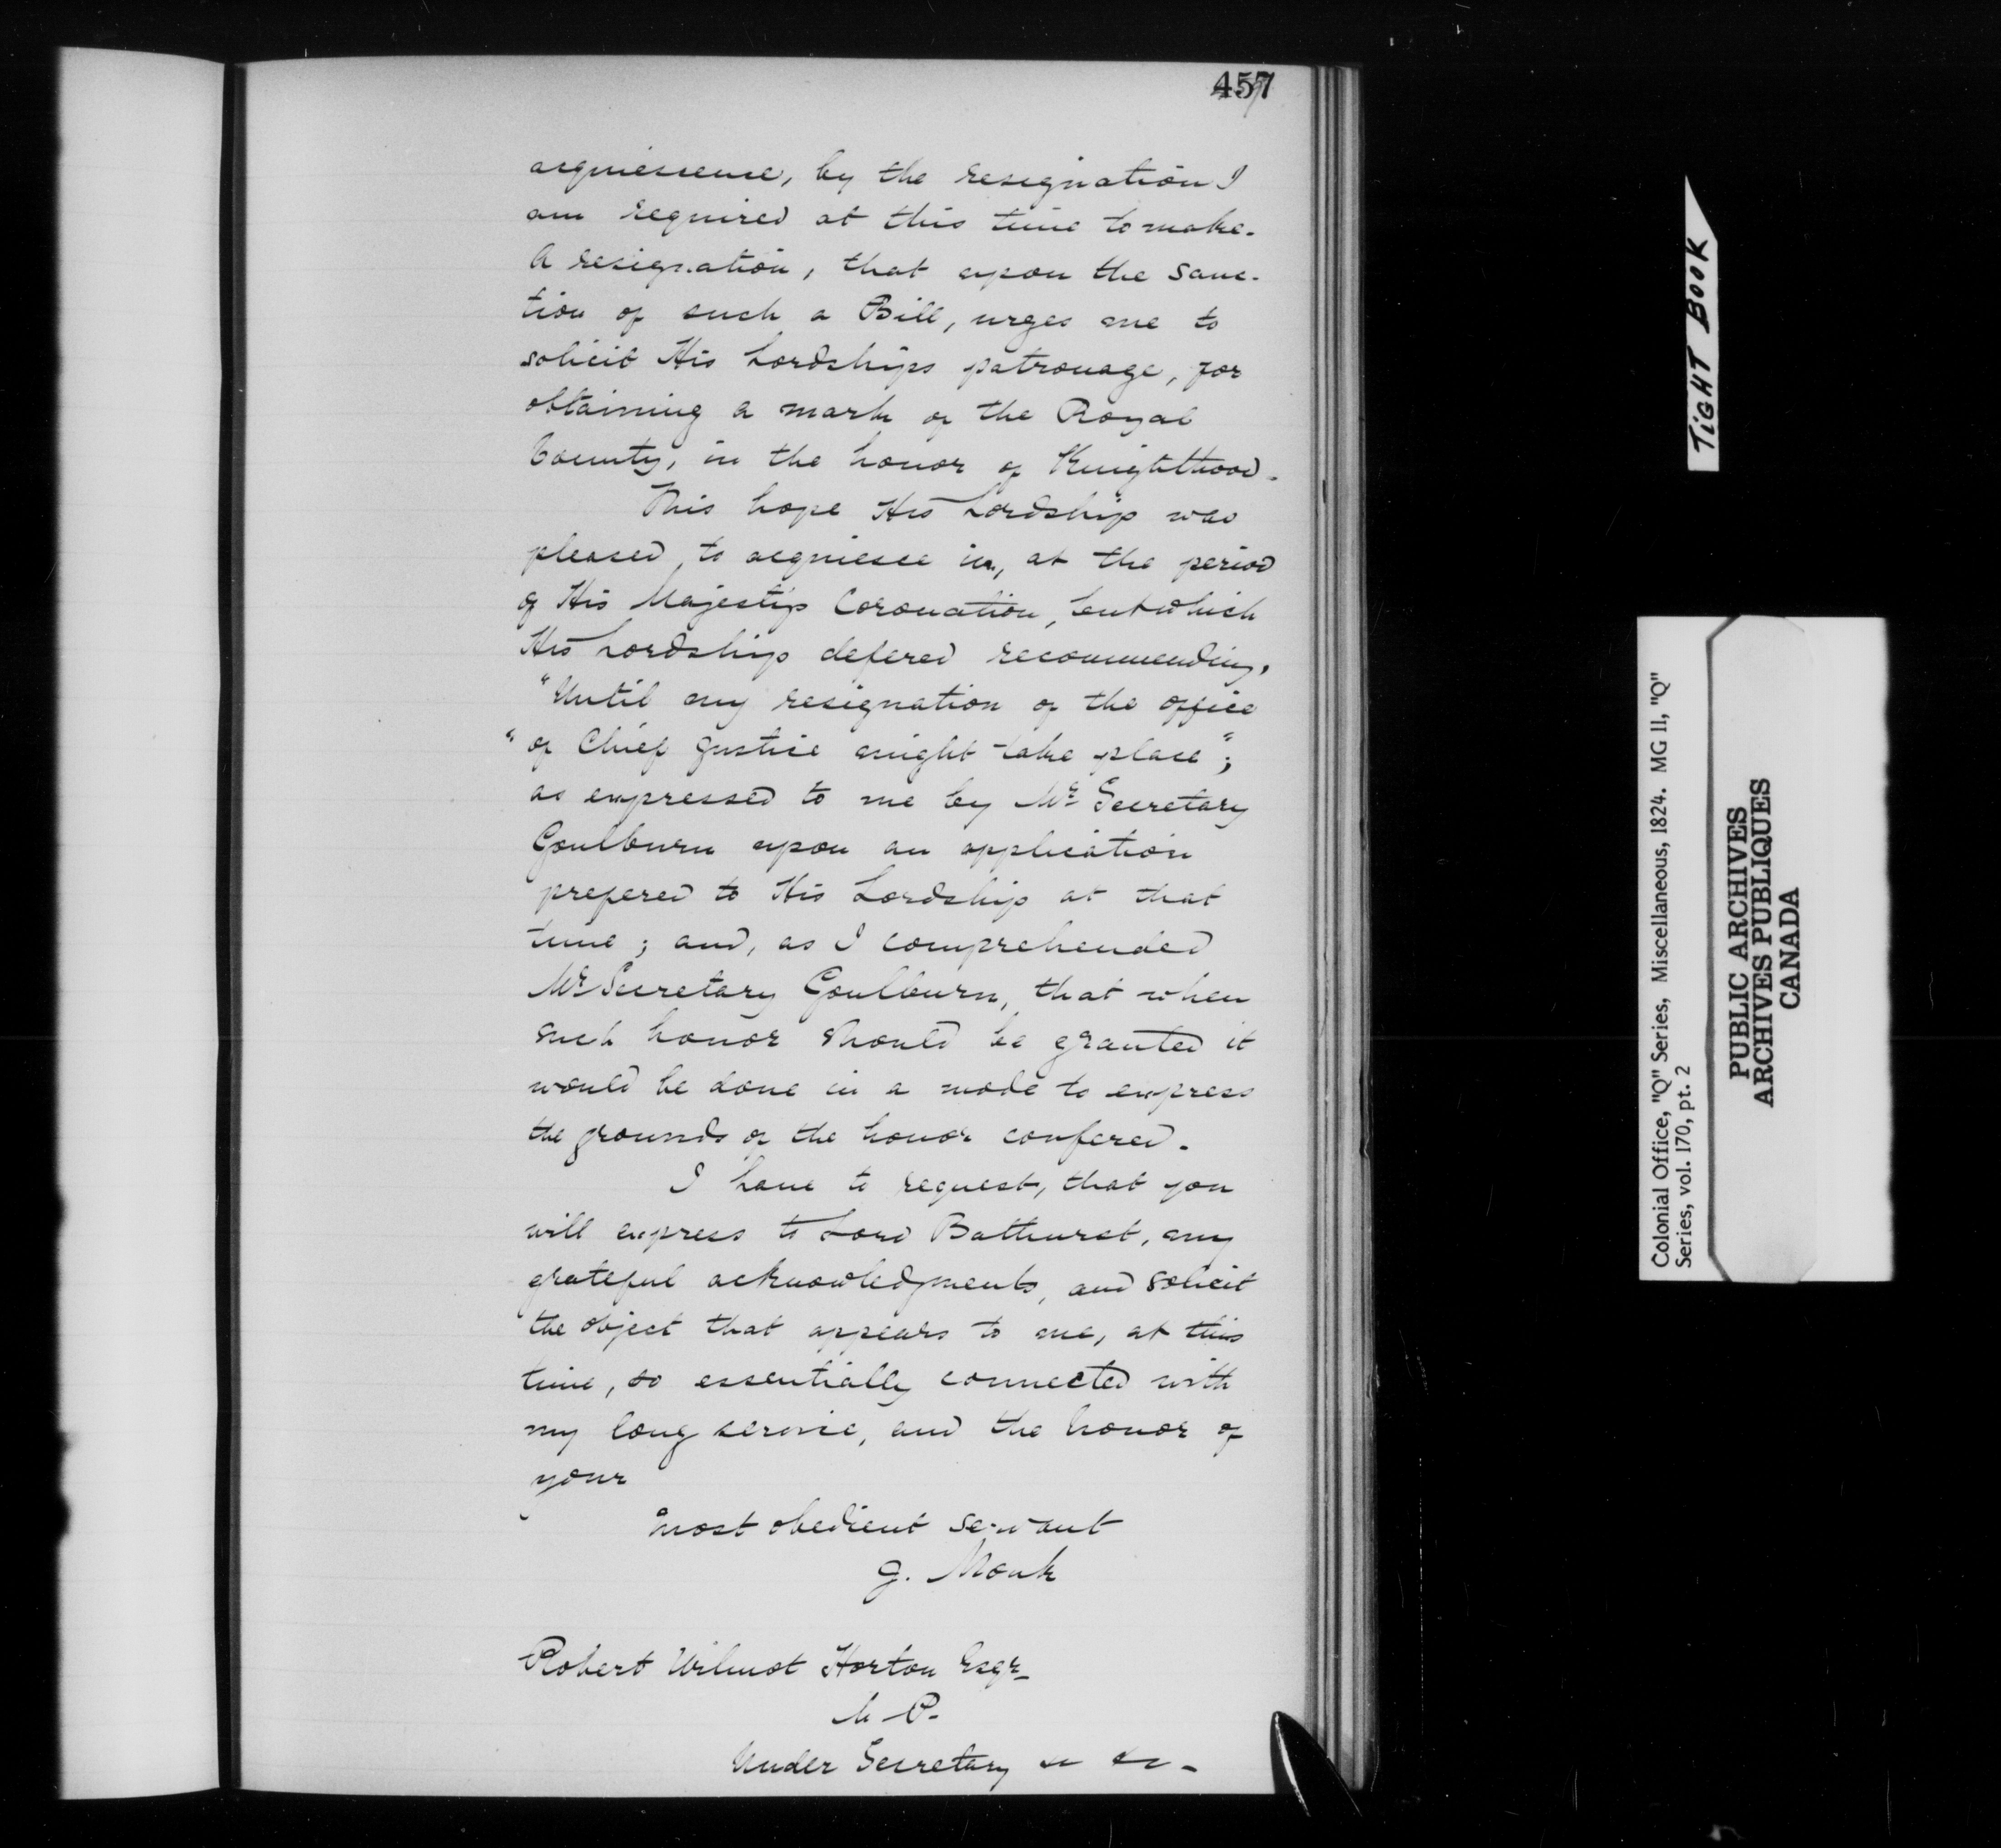 457
acquiescence, by the resignation I
am required at this time to make.
A resignation, that upon the sanc-
tion of such a Bill, urges me to
solicit His Lordships patronage, for
obtaining a mark of the Royal
bounty, in the honor of Knighthood.
This hope His Lordship was
pleased, to acquiesce in, at the period
of His Majesty's Coronation, but which
His Lordship defered recommending,
"Until my resignation of the office
"of Chief Justice might take place";
as expressed to me by Mr Secretary
Goulburn upon an application
prefered to His Lordship at that
time; and, as I comprehended
Mr Secretary Goulburn, that when
such honor should be granted it
would be done in a mode to express
the grounds of the honor confered.
I have to request, that you
will express to Lord Bathurst, my
grateful acknowledgments, and solicit
the object that appears to me, at this
time, so essentially connected with
my long service, and the honor of
your
most obedient servant
J. Monk
Robert Wilmot Horton Esqr
M. P.
Under Secretary &c &c.
TIGHT BOOK
Colonial Office, "Q" Series, Miscellaneous, 1824. MG 11, "Q"
Series, vol. 170, pt. 2
PUBLIC ARCHIVES
ARCHIVES PUBLIQUES
CANADA